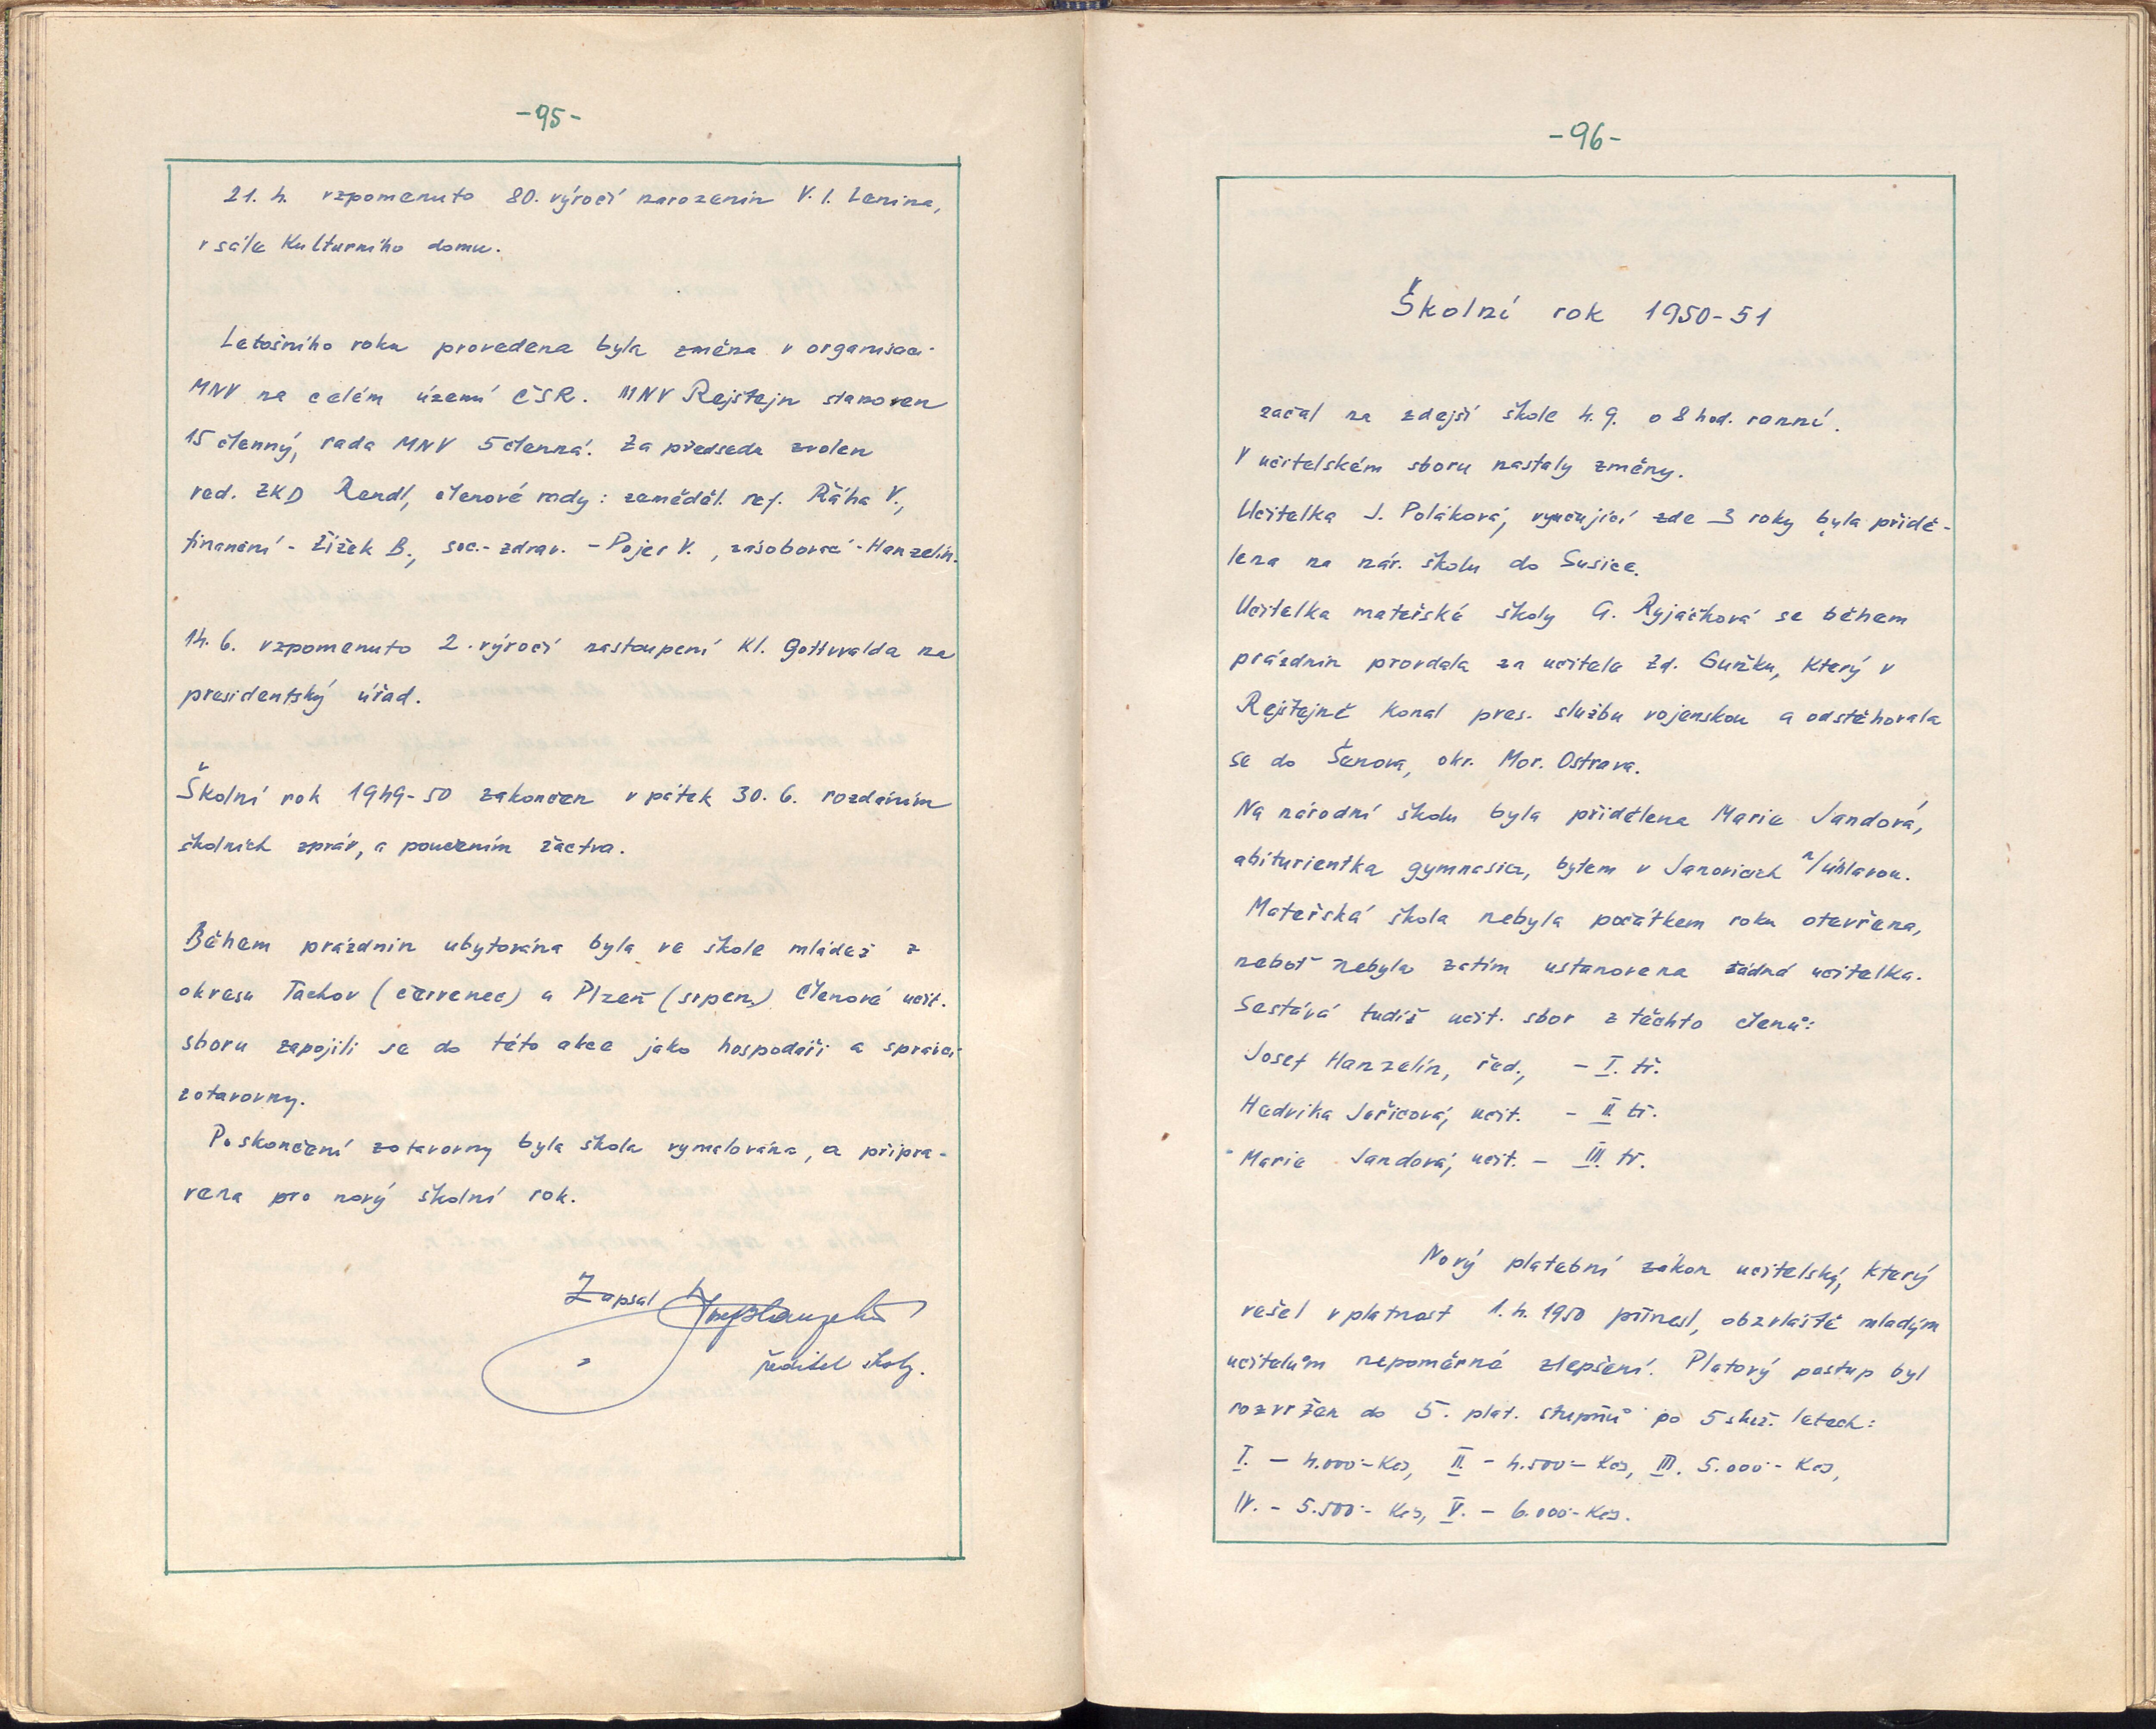 -95-
21. 4. vzpomenuto 80. výročí narozenin V. I. Lenina,
v sále Kulturního domu.
Letošního roku provedena byla změna v organisaci
MNV na celém území ČSR. MNV Rejštejn stanoven
15 členný, rada MNV 5 členná. Za předsedu zvolen
ved. ZKD Rendl, členové rady: zeměděl. ref. Řáha V.,
finanční - Žížek B., soc.-zdrav. - Pojer V., zásobovací - Hanzelín.
14. 6. vzpomenuto 2. výročí nastoupení Kl. Gottwalda na
presidentský úřad.
Školní rok 1949-50 zakončen v pátek 30. 6. rozdáním
školních zpráv, a poučením žactva.
Během prázdnin ubytována byla ve škole mládež z
okresu Tachov (červenec) a Plzeň (srpen). Členové učit.
sboru zapojili se do této akce jako hospodáři a správci
zotavovny.
Po skončení zotavovny byla škola vymalována, a připra-
vena pro nový školní rok.
Zapsal Josef Hanzelín
ředitel školy.
-96-
Školní rok 1950-51
začal na zdejší škole 4. 9. o 8 hod. ranní.
V učitelském sboru nastaly změny.
Učitelka J. Poláková, vyučující zde 3 roky byla přidě-
lena na nár. školu do Sušice.
Učitelka mateřské školy G. Ryjáčková se během
prázdnin provdala za učitele Zd. Guřku, který v
Rejštejně konal pres. službu vojenskou a odstěhovala
se do Šenova, okr. Mor. Ostrava.
Na národní školu byla přidělena Marie Jandová,
abiturientka gymnasia, bytem v Janovicích n/Úhlavou.
Mateřská škola nebyla počátkem roku otevřena,
neboť nebyla zatím ustanovena žádná učitelka.
Sestává tudíž učit. sbor z těchto členů:
Josef Hanzelín, řed., - I. tř.
Hedvika Jeřicová, učit. - II tř.
Marie Jandová, učit. - III. tř.
Nový platební zákon učitelský, který
vešel v platnost 1. 4. 1950 přinesl, obzvláště mladým
učitelům nepoměrné zlepšení. Platový postup byl
rozvržen do 5. plat. stupňů po 5 služ. letech:
I. - 4.000·- Kčs, II. - 4.500·- Kčs, III. 5.000·- Kčs,
IV. - 5.500·- Kčs, V. - 6.000·- Kčs.